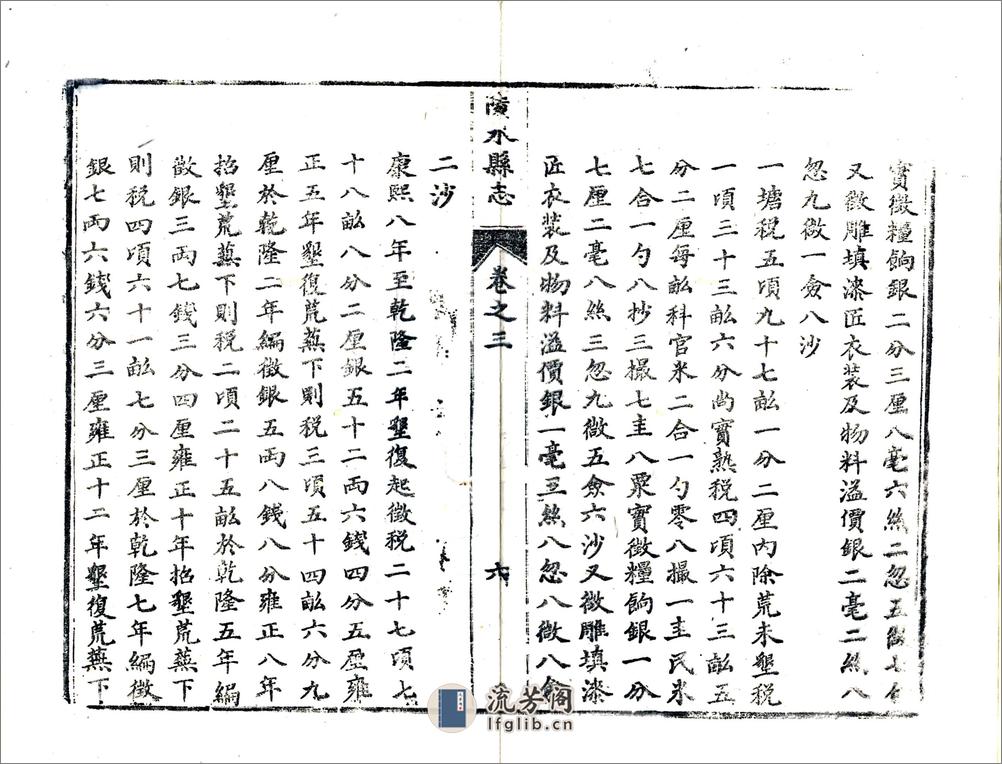 實徵糧餉銀二分三厘八毫六絲二忽五微七
又徵雕填漆匠衣装及物料溢價銀二毫二絲八
忽九微一僉八沙
一塘税五頃九十七畆一分二厘內除荒未墾税
一頃三十三畆六分尚實熟税四頃六十三畆五
分二厘每畆科官米二合一勺零八撮一圭民米
七合一勺八抄三撮七圭八粟實徵糧餉銀一分
七厘二毫八絲三忽九微五僉六沙又徵雕填漆
匠衣装及物料溢價銀一毫三絲八忽八微八僉
陵水縣志 卷之三 六
二沙
康熙八年至乾隆二年墾復起徵税二十七頃七
十八畆八分二厘銀五十二両六錢四分五厘雍
正五年墾復荒蕪下則税三頃五十四畆六分九
厘於乾隆二年編徵銀五両八錢八分雍正八年
招墾荒蕪下則税二頃二十五畆於乾隆五年編
徵銀三両七錢三分四厘雍正十年招墾荒蕪下
則税四頃六十一畆七分三厘於乾隆七年編徵
銀七両六錢六分三厘雍正十二年墾復荒蕪下
流芳阁
lfglib.cn